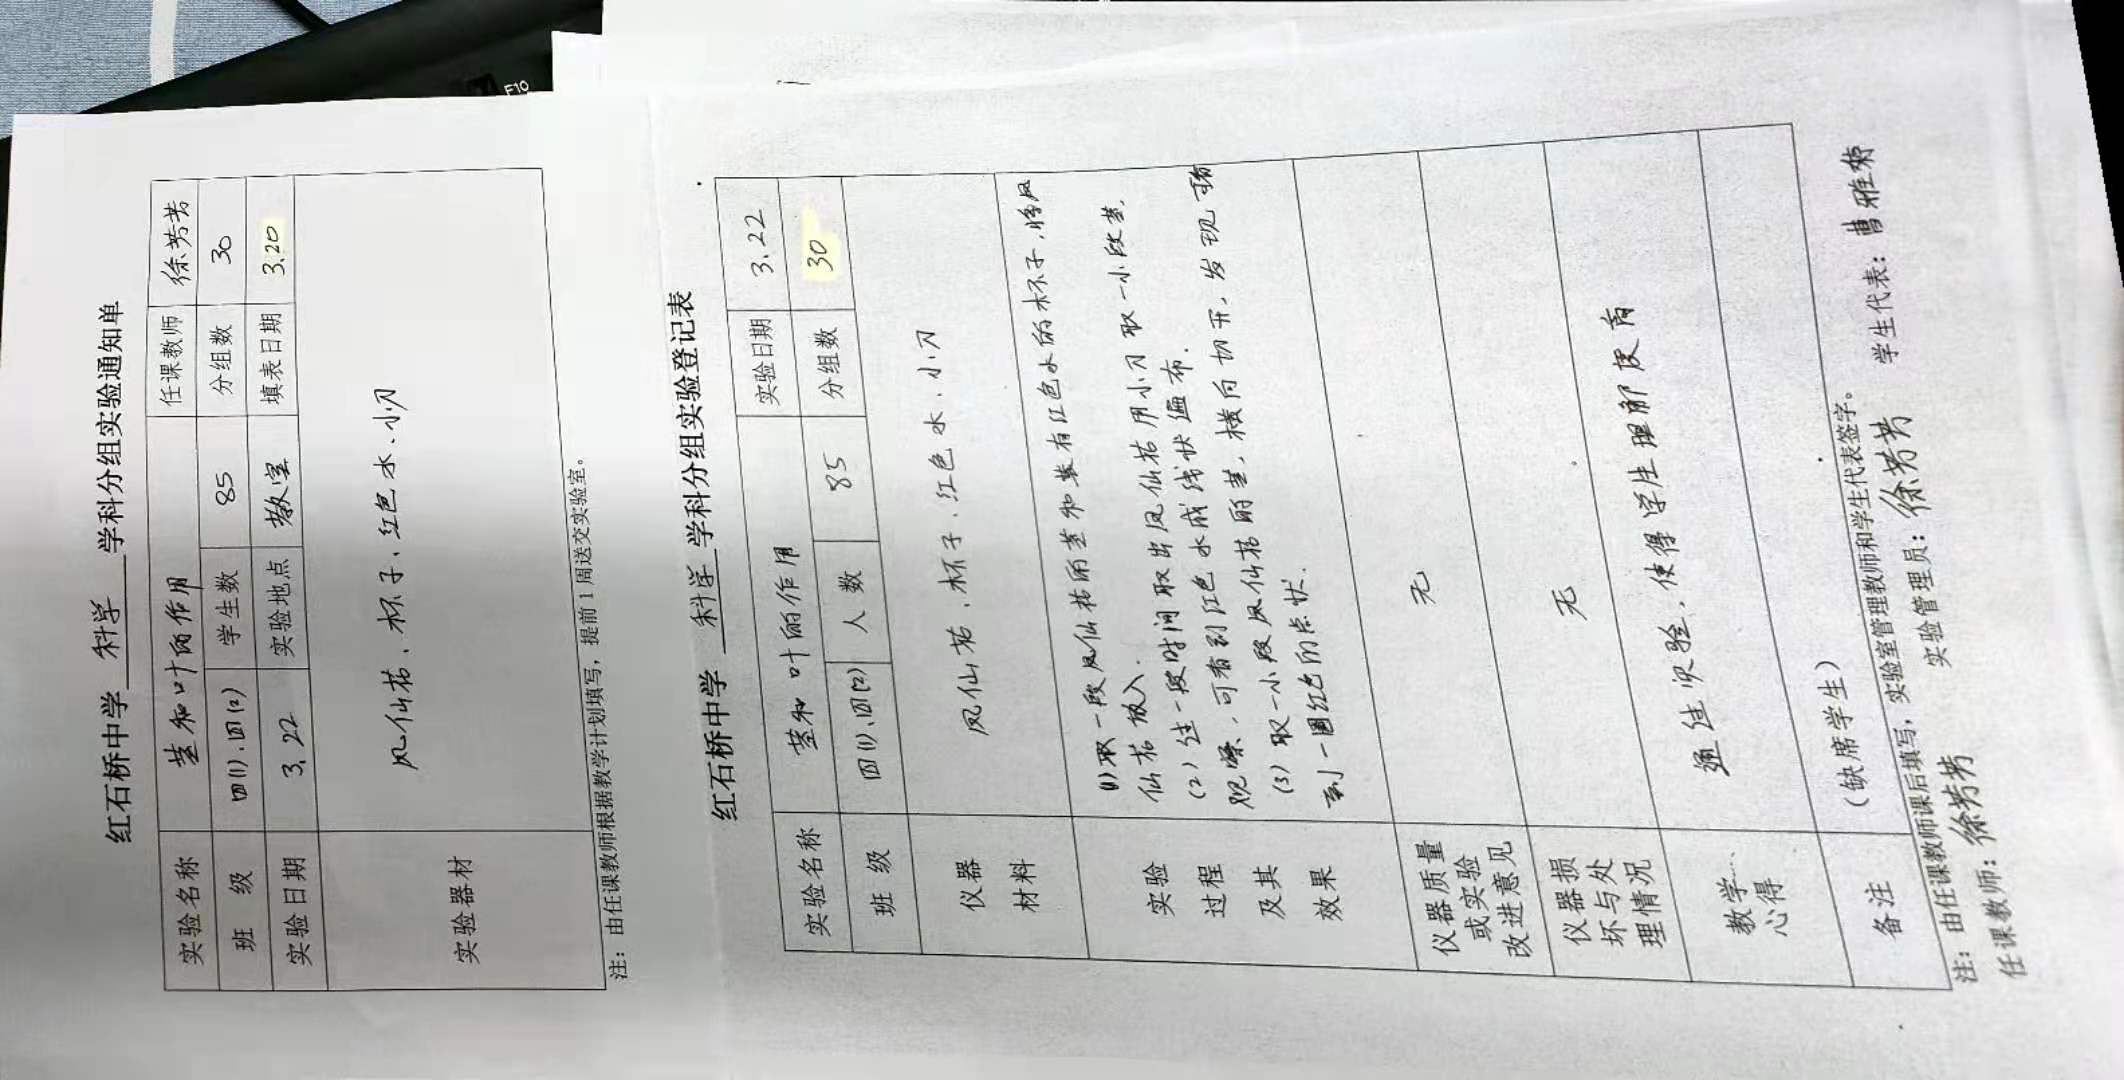 F10
红石桥中学 科学 学科分组实验通知单
实验名称 茎和叶的作用 任课教师 徐芳芳
班 级 四(1).四(2) 学生数 85 分组数 30
实验日期 3.22 实验地点 教室 填表日期 3.20
实验器材 凤仙花、杯子、红色水、小刀
注：由任课教师根据教学计划填写，提前1周送交实验室。
红石桥中学 科学 学科分组实验登记表
实验名称 茎和叶的作用 实验日期 3.22
班 级 四(1).四(2) 人 数 85 分组数 30
仪器
材料
凤仙花、杯子、红色水、小刀
实验
过程
及其
效果
(1)取一段凤仙花的茎和装有红色水的杯子,将凤
仙花放入.
(2)过一段时间取出凤仙花用小刀取一小段茎.
观察,可看到红色水成线状遍布.
(3)取一小段凤仙花的茎,横向切开,发现可看
到一圈红色的点状.
仪器质量
或实验
改进意见
无
仪器损
坏与处
理情况
无
教学
心得
通过实验,使得学生理解
备注 (缺席学生)
注：由任课教师课后填写，实验室管理教师和学生代表签字。
任课教师：徐芳芳 实验管理员：徐芳芳 学生代表：曹雅